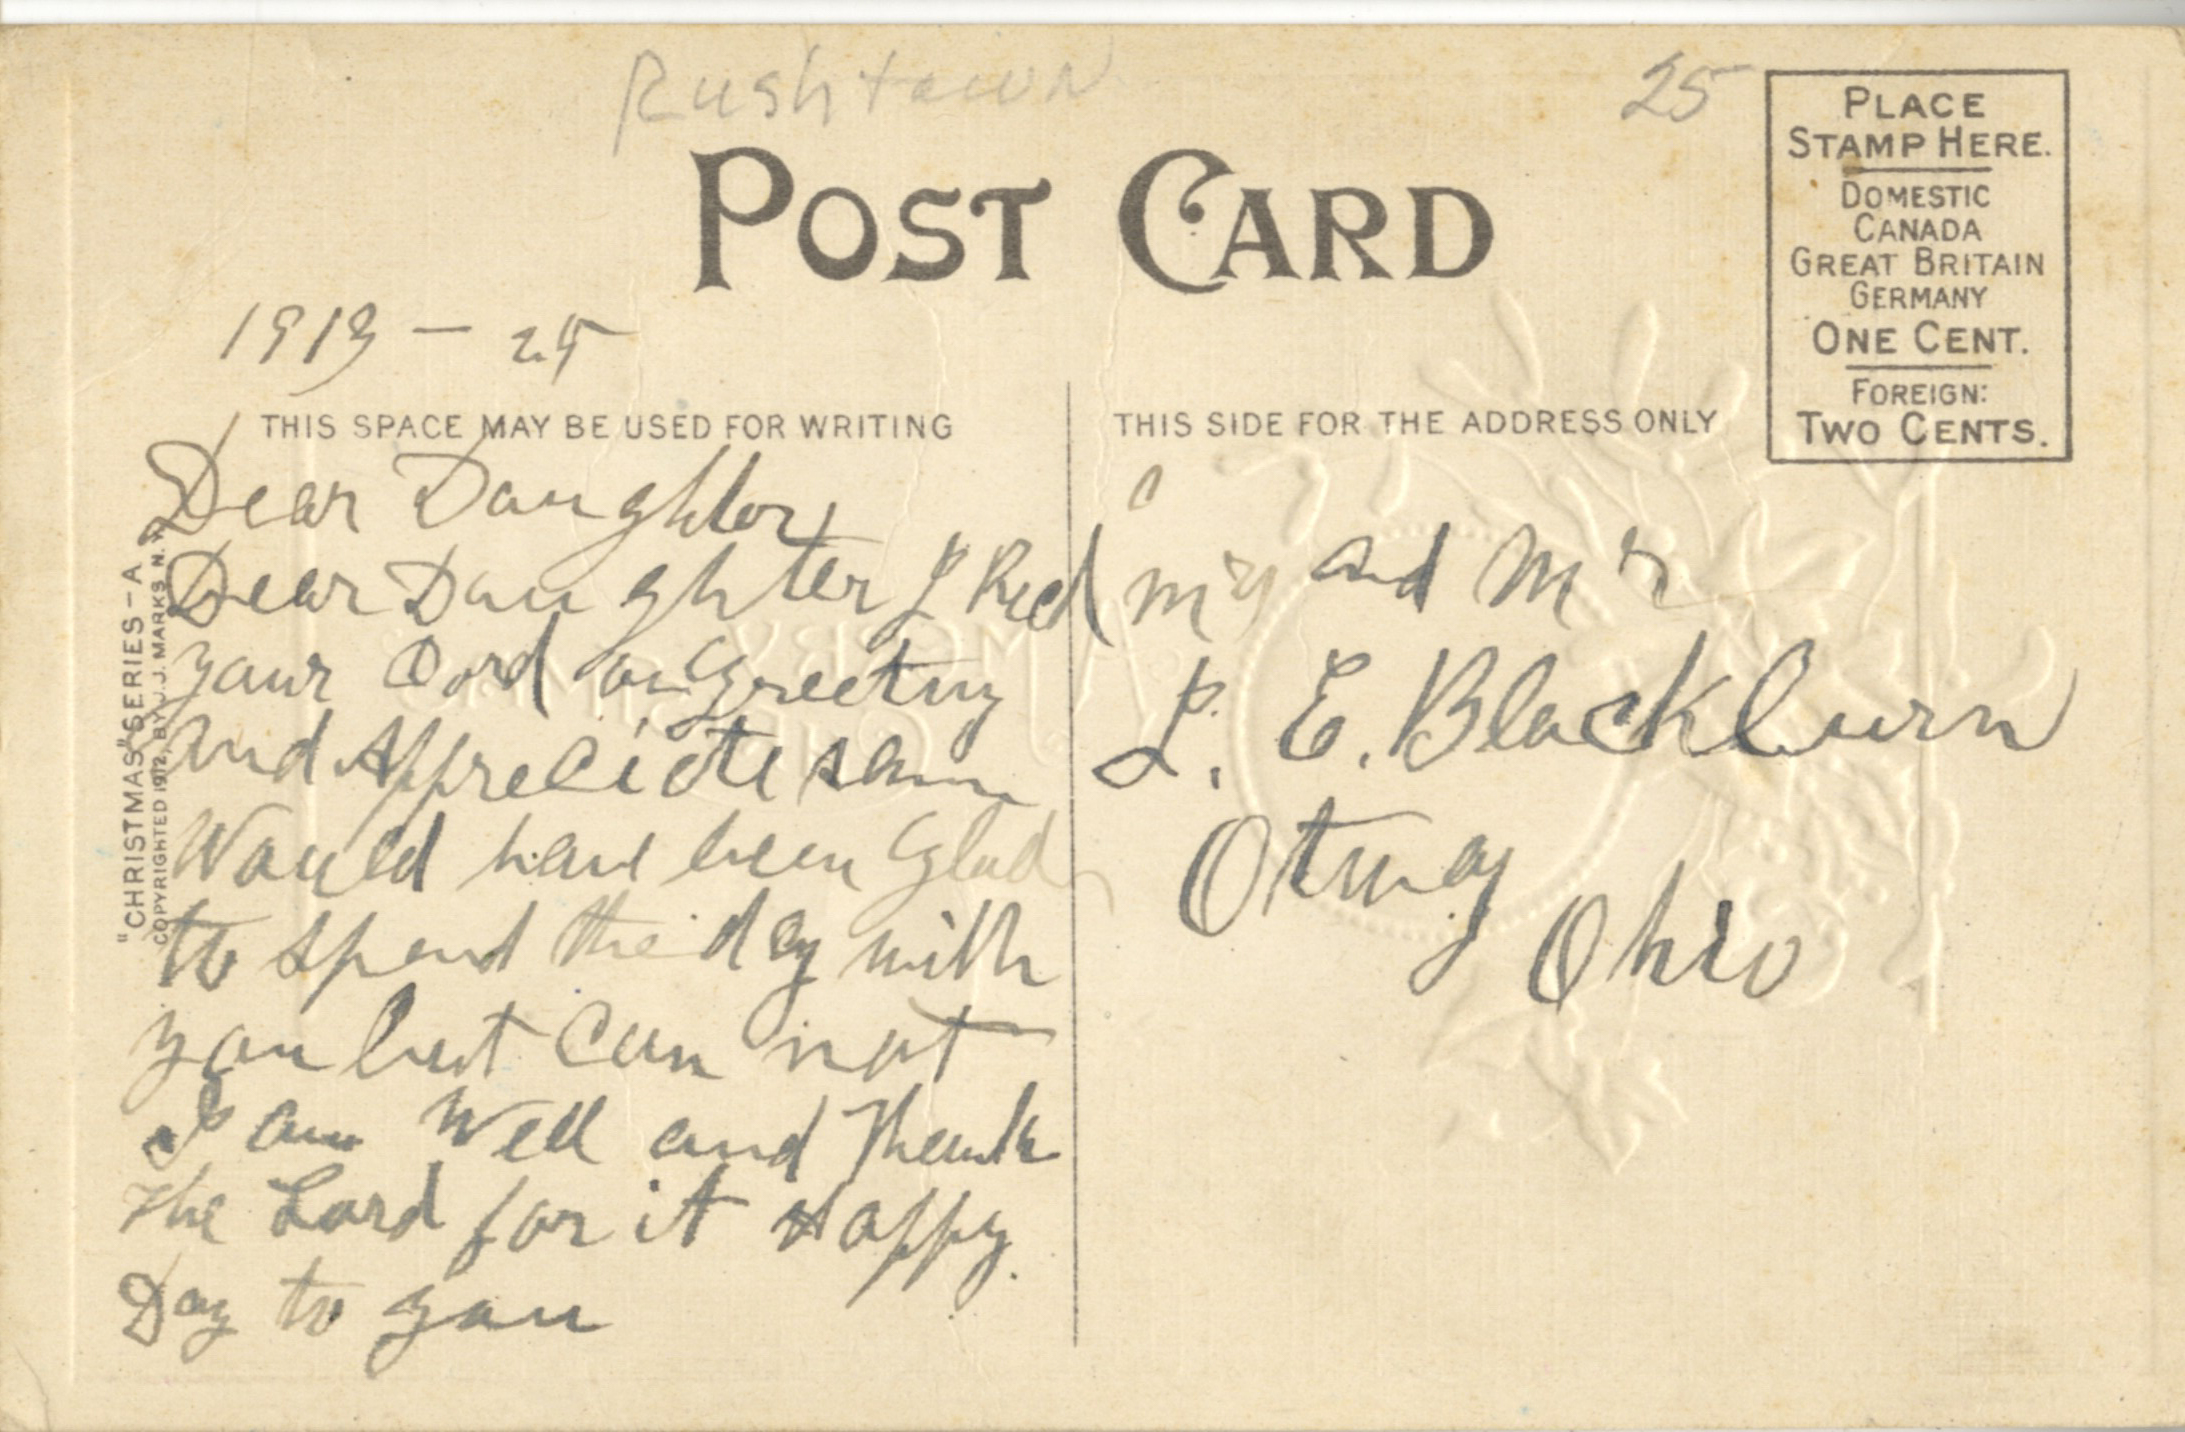 Rushtown
25
POST CARD
PLACE
STAMP HERE.
DOMESTIC
CANADA
GREAT BRITAIN
GERMANY
ONE CENT.
FOREIGN:
TWO CENTS.
1913 - 25
THIS SPACE MAY BE USED FOR WRITING
Dear Daughter
Dear Daughter I Recd
your Card on Greeting
and Appreciate same
Would have been Glad
to spend the day with
you but can not
I am Well and Thank
the Lord for it Happy
Day to you
THIS SIDE FOR THE ADDRESS ONLY
Mrs and Mr
L. E. Blackburn
Otway
Ohio
"CHRISTMAS" SERIES - A
COPYRIGHTED 1912, BY J. J. MARKS N.